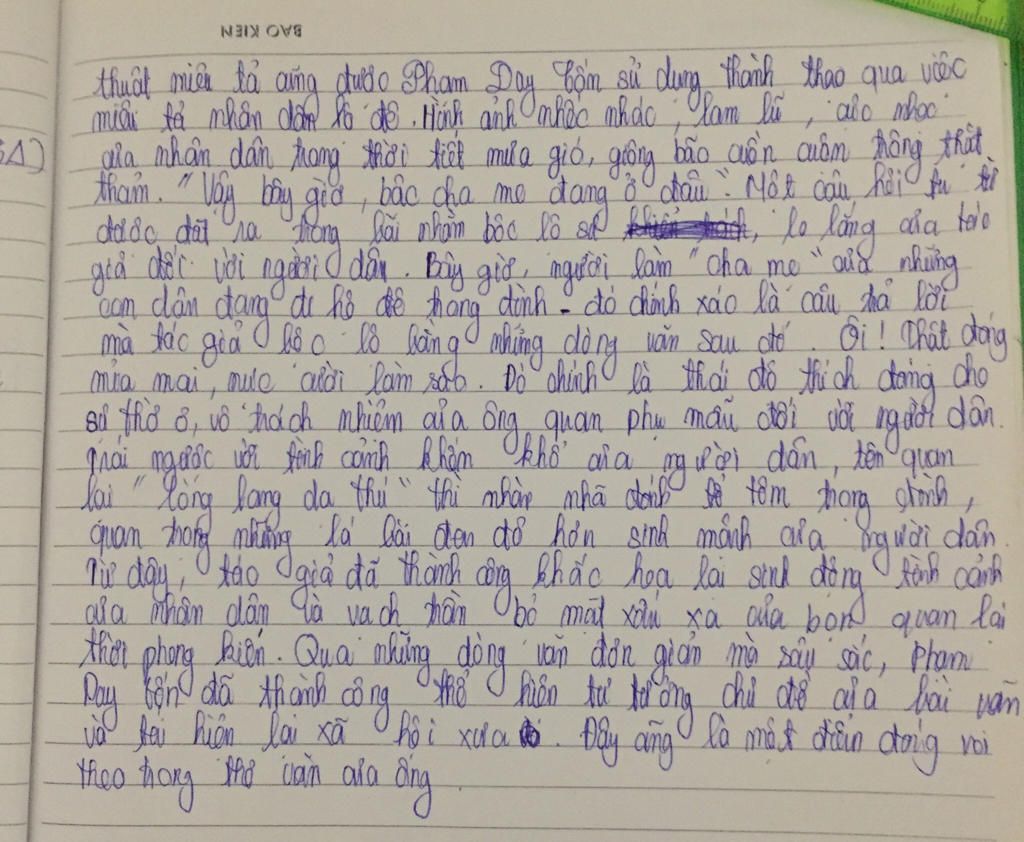 BAO KIEN
thuật miêu tả cũng được Phạm Duy Tốn sử dụng thành thạo qua việc
miêu tả nhân dân hộ đê. Hình ảnh nhếc nhác, lam lũ, cực nhọc
của nhân dân trong thời tiết mưa gió, giông bão cuồn cuộn trông thật
thảm. "Vậy bây giờ, bậc cha mẹ đang ở đâu". Một câu hỏi tu từ
được đặt ra trong bài nhằm bộc lộ sự lo lắng của tác
giả đối với người dân. Bây giờ, người làm "cha mẹ" của những
con dân đang đi hộ đê trong đình - đó chính xác là câu trả lời
mà tác giả bộc lộ bằng những dòng văn sau đó. Ôi! Thật đáng
mỉa mai, nực cười làm sao. Đó chính là thái độ thích đáng cho
sự thờ ơ, vô trách nhiệm của ông quan phụ mẫu đối với người dân.
Trái ngược với tình cảnh khốn khổ của người dân, tên quan
lại "lòng lang dạ thú" thì nhàn nhã đánh tổ tôm trong đình,
quan trọng những lá bài đen đỏ hơn sinh mệnh của người dân.
Từ đây, tác giả đã thành công khắc họa lại sinh động tình cảnh
của nhân dân và vạch trần bộ mặt xấu xa của bọn quan lại
thời phong kiến. Qua những dòng văn đơn giản mà sâu sắc, Phạm
Duy Tốn đã thành công thể hiện tư tưởng chủ đề của bài văn
và tái hiện lại xã hội xưa. Đây cũng là một điểm đáng
theo trong thơ văn của ông